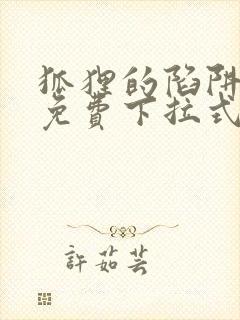 狐狸的陷阱
免費下拉式
許茹芸